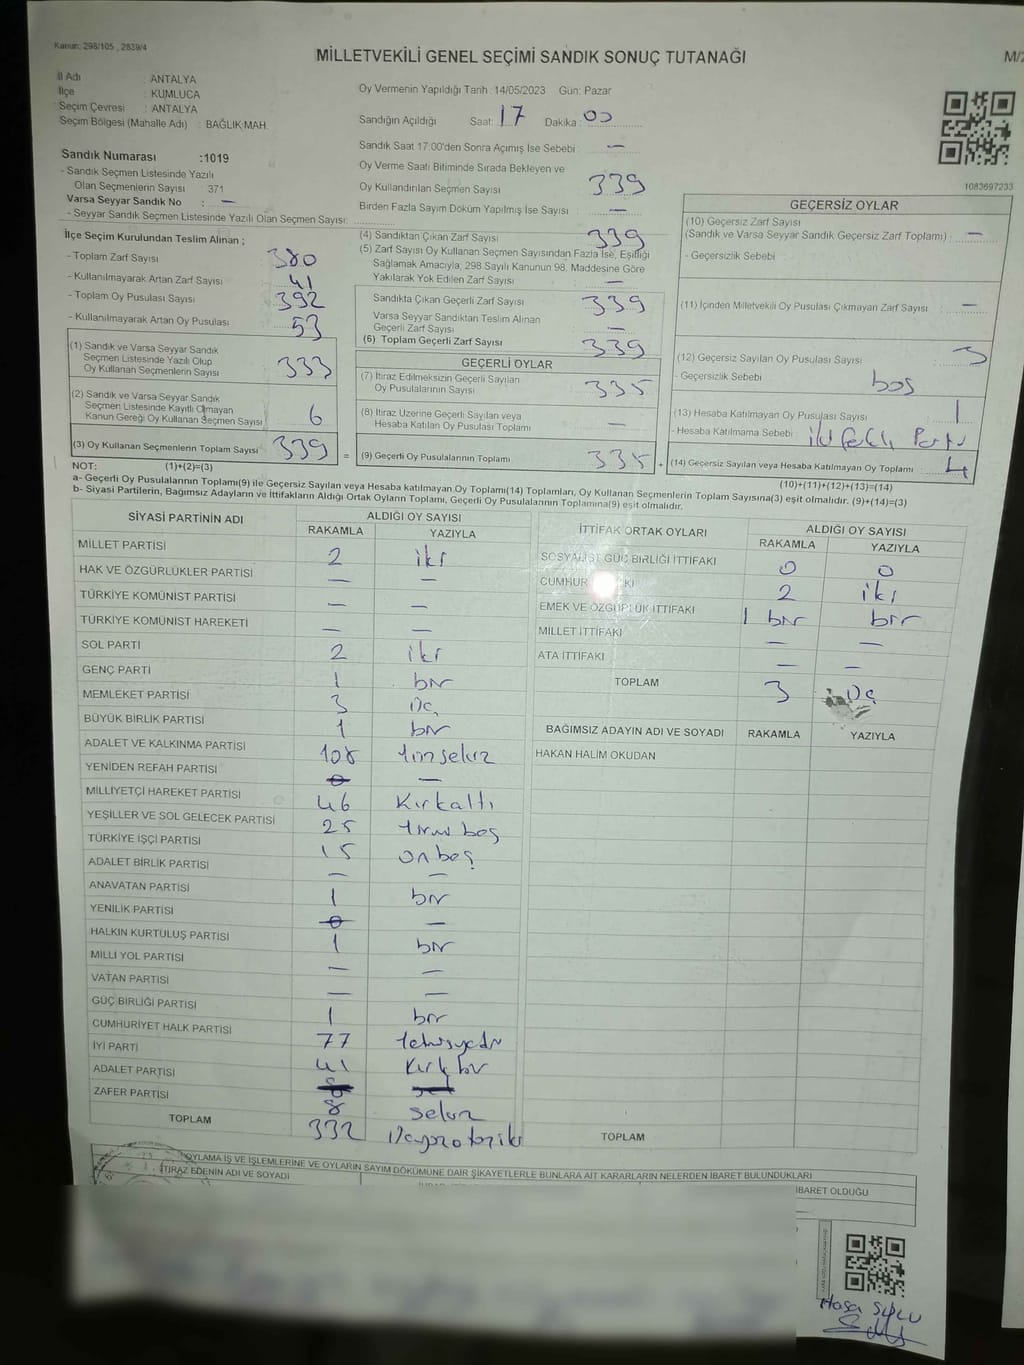 Kanun: 298/105 , 2839/4
MİLLETVEKİLİ GENEL SEÇİMİ SANDIK SONUÇ TUTANAĞI
İl Adı : ANTALYA
İlçe : KUMLUCA
Seçim Çevresi : ANTALYA
Seçim Bölgesi (Mahalle Adı) : BAĞLIK MAH.
Oy Vermenin Yapıldığı Tarih :14/05/2023 Gün: Pazar
Sandığın Açıldığı Saat: 17 Dakika : 00
Sandık Numarası :1019
- Sandık Seçmen Listesinde Yazılı
Olan Seçmenlerin Sayısı : 371
Varsa Seyyar Sandık No : —
- Seyyar Sandık Seçmen Listesinde Yazılı Olan Seçmen Sayısı:
Sandık Saat 17:00'den Sonra Açımış İse Sebebi : —
Oy Verme Saati Bitiminde Sırada Bekleyen ve
Oy Kullandırılan Seçmen Sayısı 339
Birden Fazla Sayım Döküm Yapılmış İse Sayısı : —
1083697233
İlçe Seçim Kurulundan Teslim Alınan ;
- Toplam Zarf Sayısı : 380
- Kullanılmayarak Artan Zarf Sayısı : 41
- Toplam Oy Pusulası Sayısı : 392
- Kullanılmayarak Artan Oy Pusulası : 53
(1) Sandık ve Varsa Seyyar Sandık
Seçmen Listesinde Yazılı Olup
Oy Kullanan Seçmenlerin Sayısı : 333
(2) Sandık ve Varsa Seyyar Sandık
Seçmen Listesinde Kayıtlı Olmayan
Kanun Gereği Oy Kullanan Seçmen Sayısı : 6
(3) Oy Kullanan Seçmenlerin Toplam Sayısı : 339
(1)+(2)=(3)
(4) Sandıktan Çıkan Zarf Sayısı : 339
(5) Zarf Sayısı Oy Kullanan Seçmen Sayısından Fazla İse, Eşitliği
Sağlamak Amacıyla, 298 Sayılı Kanunun 98. Maddesine Göre
Yakılarak Yok Edilen Zarf Sayısı : —
Sandıkta Çıkan Geçerli Zarf Sayısı : 339
Varsa Seyyar Sandıktan Teslim Alınan
Geçerli Zarf Sayısı : —
(6) Toplam Geçerli Zarf Sayısı : 339
GEÇERLİ OYLAR
(7) İtiraz Edilmeksizin Geçerli Sayılan
Oy Pusulalarının Sayısı : 335
(8) İtiraz Üzerine Geçerli Sayılan veya
Hesaba Katılan Oy Pusulası Toplamı : —
(9) Geçerli Oy Pusulalarının Toplamı : 335
GEÇERSİZ OYLAR
(10) Geçersiz Zarf Sayısı
(Sandık ve Varsa Seyyar Sandık Geçersiz Zarf Toplamı) : —
- Geçersizlik Sebebi :
(11) İçinden Milletvekili Oy Pusulası Çıkmayan Zarf Sayısı : —
(12) Geçersiz Sayılan Oy Pusulası Sayısı : 3
- Geçersizlik Sebebi : boş
(13) Hesaba Katılmayan Oy Pusulası Sayısı : 1
- Hesaba Katılmama Sebebi : iki farklı Parti
(14) Geçersiz Sayılan veya Hesaba Katılmayan Oy Toplamı : 4
(10)+(11)+(12)+(13)=(14)
NOT:
a- Geçerli Oy Pusulalarının Toplamı(9) ile Geçersiz Sayılan veya Hesaba katılmayan Oy Toplamı(14) Toplamları, Oy Kullanan Seçmenlerin Toplam Sayısına(3) eşit olmalıdır. (9)+(14)=(3)
b- Siyasi Partilerin, Bağımsız Adayların ve İttifakların Aldığı Ortak Oyların Toplamı, Geçerli Oy Pusulalarının Toplamına(9) eşit olmalıdır.
SİYASİ PARTİNİN ADI ALDIĞI OY SAYISI
RAKAMLA YAZIYLA
MİLLET PARTİSİ 2 iki
HAK VE ÖZGÜRLÜKLER PARTİSİ — —
TÜRKİYE KOMÜNİST PARTİSİ — —
TÜRKİYE KOMÜNİST HAREKETİ — —
SOL PARTİ 2 iki
GENÇ PARTİ 1 bir
MEMLEKET PARTİSİ 3 üç
BÜYÜK BİRLİK PARTİSİ 1 bir
ADALET VE KALKINMA PARTİSİ 108
YENİDEN REFAH PARTİSİ —
MİLLİYETÇİ HAREKET PARTİSİ 46 Kırkaltı
YEŞİLLER VE SOL GELECEK PARTİSİ 25 yirmi beş
TÜRKİYE İŞÇİ PARTİSİ 15 onbeş
ADALET BİRLİK PARTİSİ — —
ANAVATAN PARTİSİ 1 bir
YENİLİK PARTİSİ —
HALKIN KURTULUŞ PARTİSİ 1 bir
MİLLİ YOL PARTİSİ — —
VATAN PARTİSİ — —
GÜÇ BİRLİĞİ PARTİSİ 1 bir
CUMHURİYET HALK PARTİSİ 77
İYİ PARTİ 41 Kırk bir
ADALET PARTİSİ
ZAFER PARTİSİ 8 sekiz
TOPLAM 332
İTTİFAK ORTAK OYLARI ALDIĞI OY SAYISI
RAKAMLA YAZIYLA
SOSYALİST GÜÇ BİRLİĞİ İTTİFAKI 0 0
CUMHUR KI 2 iki
EMEK VE ÖZGÜRLÜK İTTİFAKI 1 bir bir
MİLLET İTTİFAKI — —
ATA İTTİFAKI — —
TOPLAM 3 üç
BAĞIMSIZ ADAYIN ADI VE SOYADI RAKAMLA YAZIYLA
HAKAN HALİM OKUDAN
TOPLAM
OYLAMA İŞ VE İŞLEMLERİNE VE OYLARIN SAYIM DÖKÜMÜNE DAİR ŞİKAYETLERLE BUNLARA AİT KARARLARIN NELERDEN İBARET BULUNDUKLARI
İTİRAZ EDENİN ADI VE SOYADI
İBARET OLDUĞU